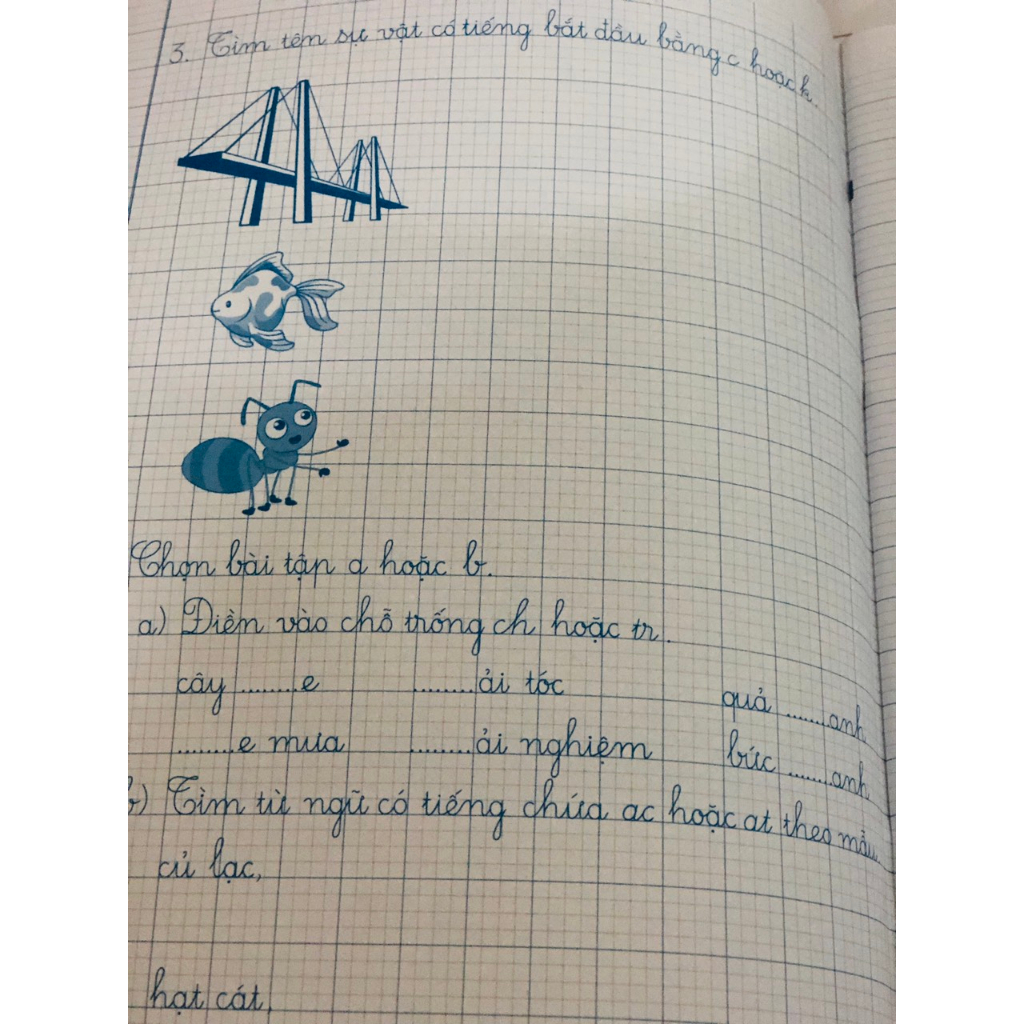 3. Tìm tên sự vật có tiếng bắt đầu bằng c hoặc k.
Chọn bài tập a hoặc b.
a) Điền vào chỗ trống ch hoặc tr.
cây ........e ........ải tóc quả .......anh
........e mưa ........ải nghiệm bức .......anh
b) Tìm từ ngữ có tiếng chứa ac hoặc at theo mẫu.
củ lạc,
hạt cát,